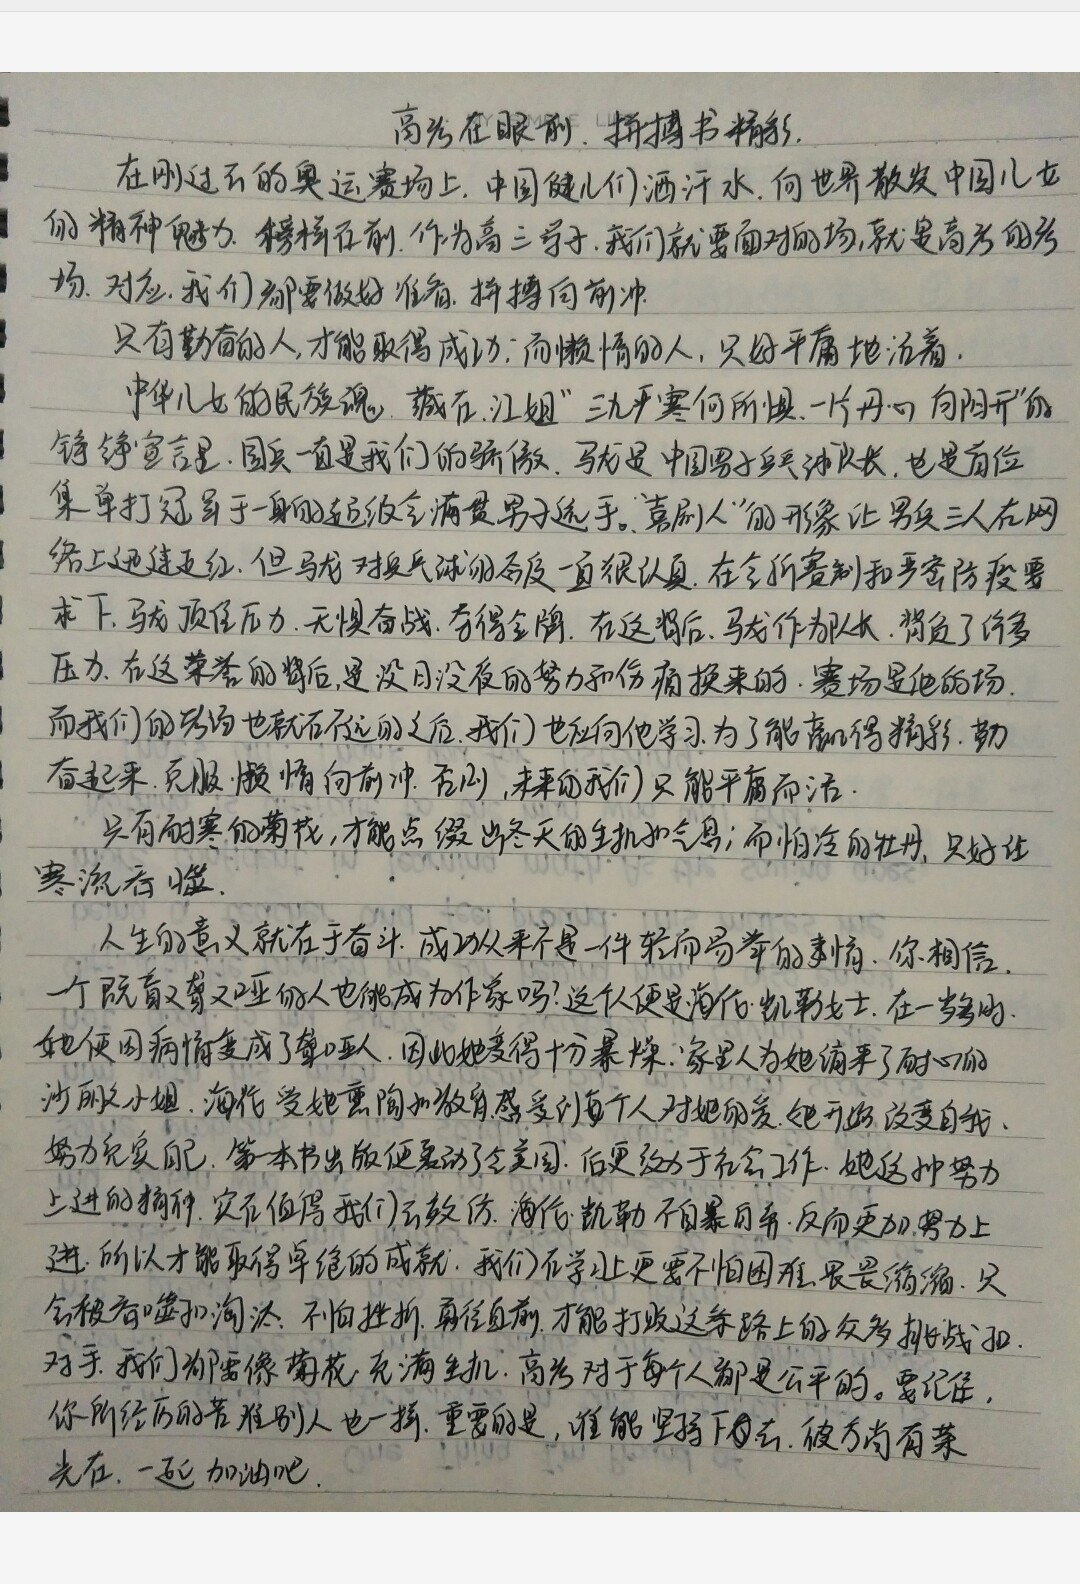 高考在眼前，拼搏书精彩.
在刚过去的奥运赛场上，中国健儿们洒汗水，向世界散发中国儿女
的精神魅力，榜样在前，作为高三学子，我们就要面对的场，就是高考的考
场、对应，我们都要做好准备，拼搏向前冲.
只有勤奋的人，才能取得成功；而懒惰的人，只好平庸地活着.
中华儿女的民族魂，藏在江姐"三九严寒何所惧，一片丹心向阳开"的
铮铮宣言里，国乒一直是我们的骄傲，马龙是中国男子乒乓球队长，也是首位
集单打冠军于一身的超级全满贯男子选手。"喜剧人"的形象让男乒三人在网
络上迅速走红，但马龙对乒乓球的态度一直很认真，在全新赛制和严密防疫要
求下，马龙顶住压力，无惧奋战，夺得金牌，在这背后，马龙作为队长，背负了许多
压力，在这荣誉的背后，是没日没夜的努力和伤痛换来的，赛场是他的场，
而我们的考场也就在不远的之后，我们也应向他学习，为了能赢得精彩，勤
奋起来，克服懒惰向前冲，否则，未来的我们只能平庸而活.
只有耐寒的菊花，才能点缀出冬天的生机和气息；而怕冷的牡丹，只好让
寒流吞噬.
人生的意义就在于奋斗，成功从来不是一件轻而易举的事情，你相信，
一个既盲又聋又哑的人也能成为作家吗？这个人便是海伦·凯勒女士，在一岁多时，
她便因病情变成了聋哑人，因此她变得十分暴燥，家里人为她请来了耐心的
沙丽文小姐，海伦受她熏陶和教育，感受到每个人对她的爱，她开始改变自我，
努力充实自己，第一本书出版便轰动了全美国，后更致力于社会工作，她这种努力
上进的精神，实在值得我们去效仿，海伦·凯勒不自暴自弃，反而更加努力上
进，所以才能取得卓绝的成就，我们在学习上更要不怕困难，畏畏缩缩，只
会被吞噬和淘汰，不怕挫折，勇往直前，才能打败这条路上的众多挑战和
对手，我们都要像菊花，充满生机，高考对于每个人都是公平的。要记住，
你所经历的苦难别人也一样，重要的是，谁能坚持下去，彼方尚有荣
光在，一起加油吧.